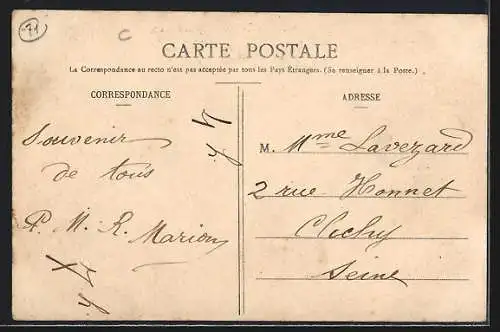 71
C
CARTE POSTALE
La Correspondance au recto n'est pas acceptée par tous les Pays Étrangers. (Se renseigner à la Poste.)
CORRESPONDANCE
Souvenir
de tous
P. M. R. Marion
ADRESSE
M. Mme Lavezard
2 rue Honnet
Clichy
Seine